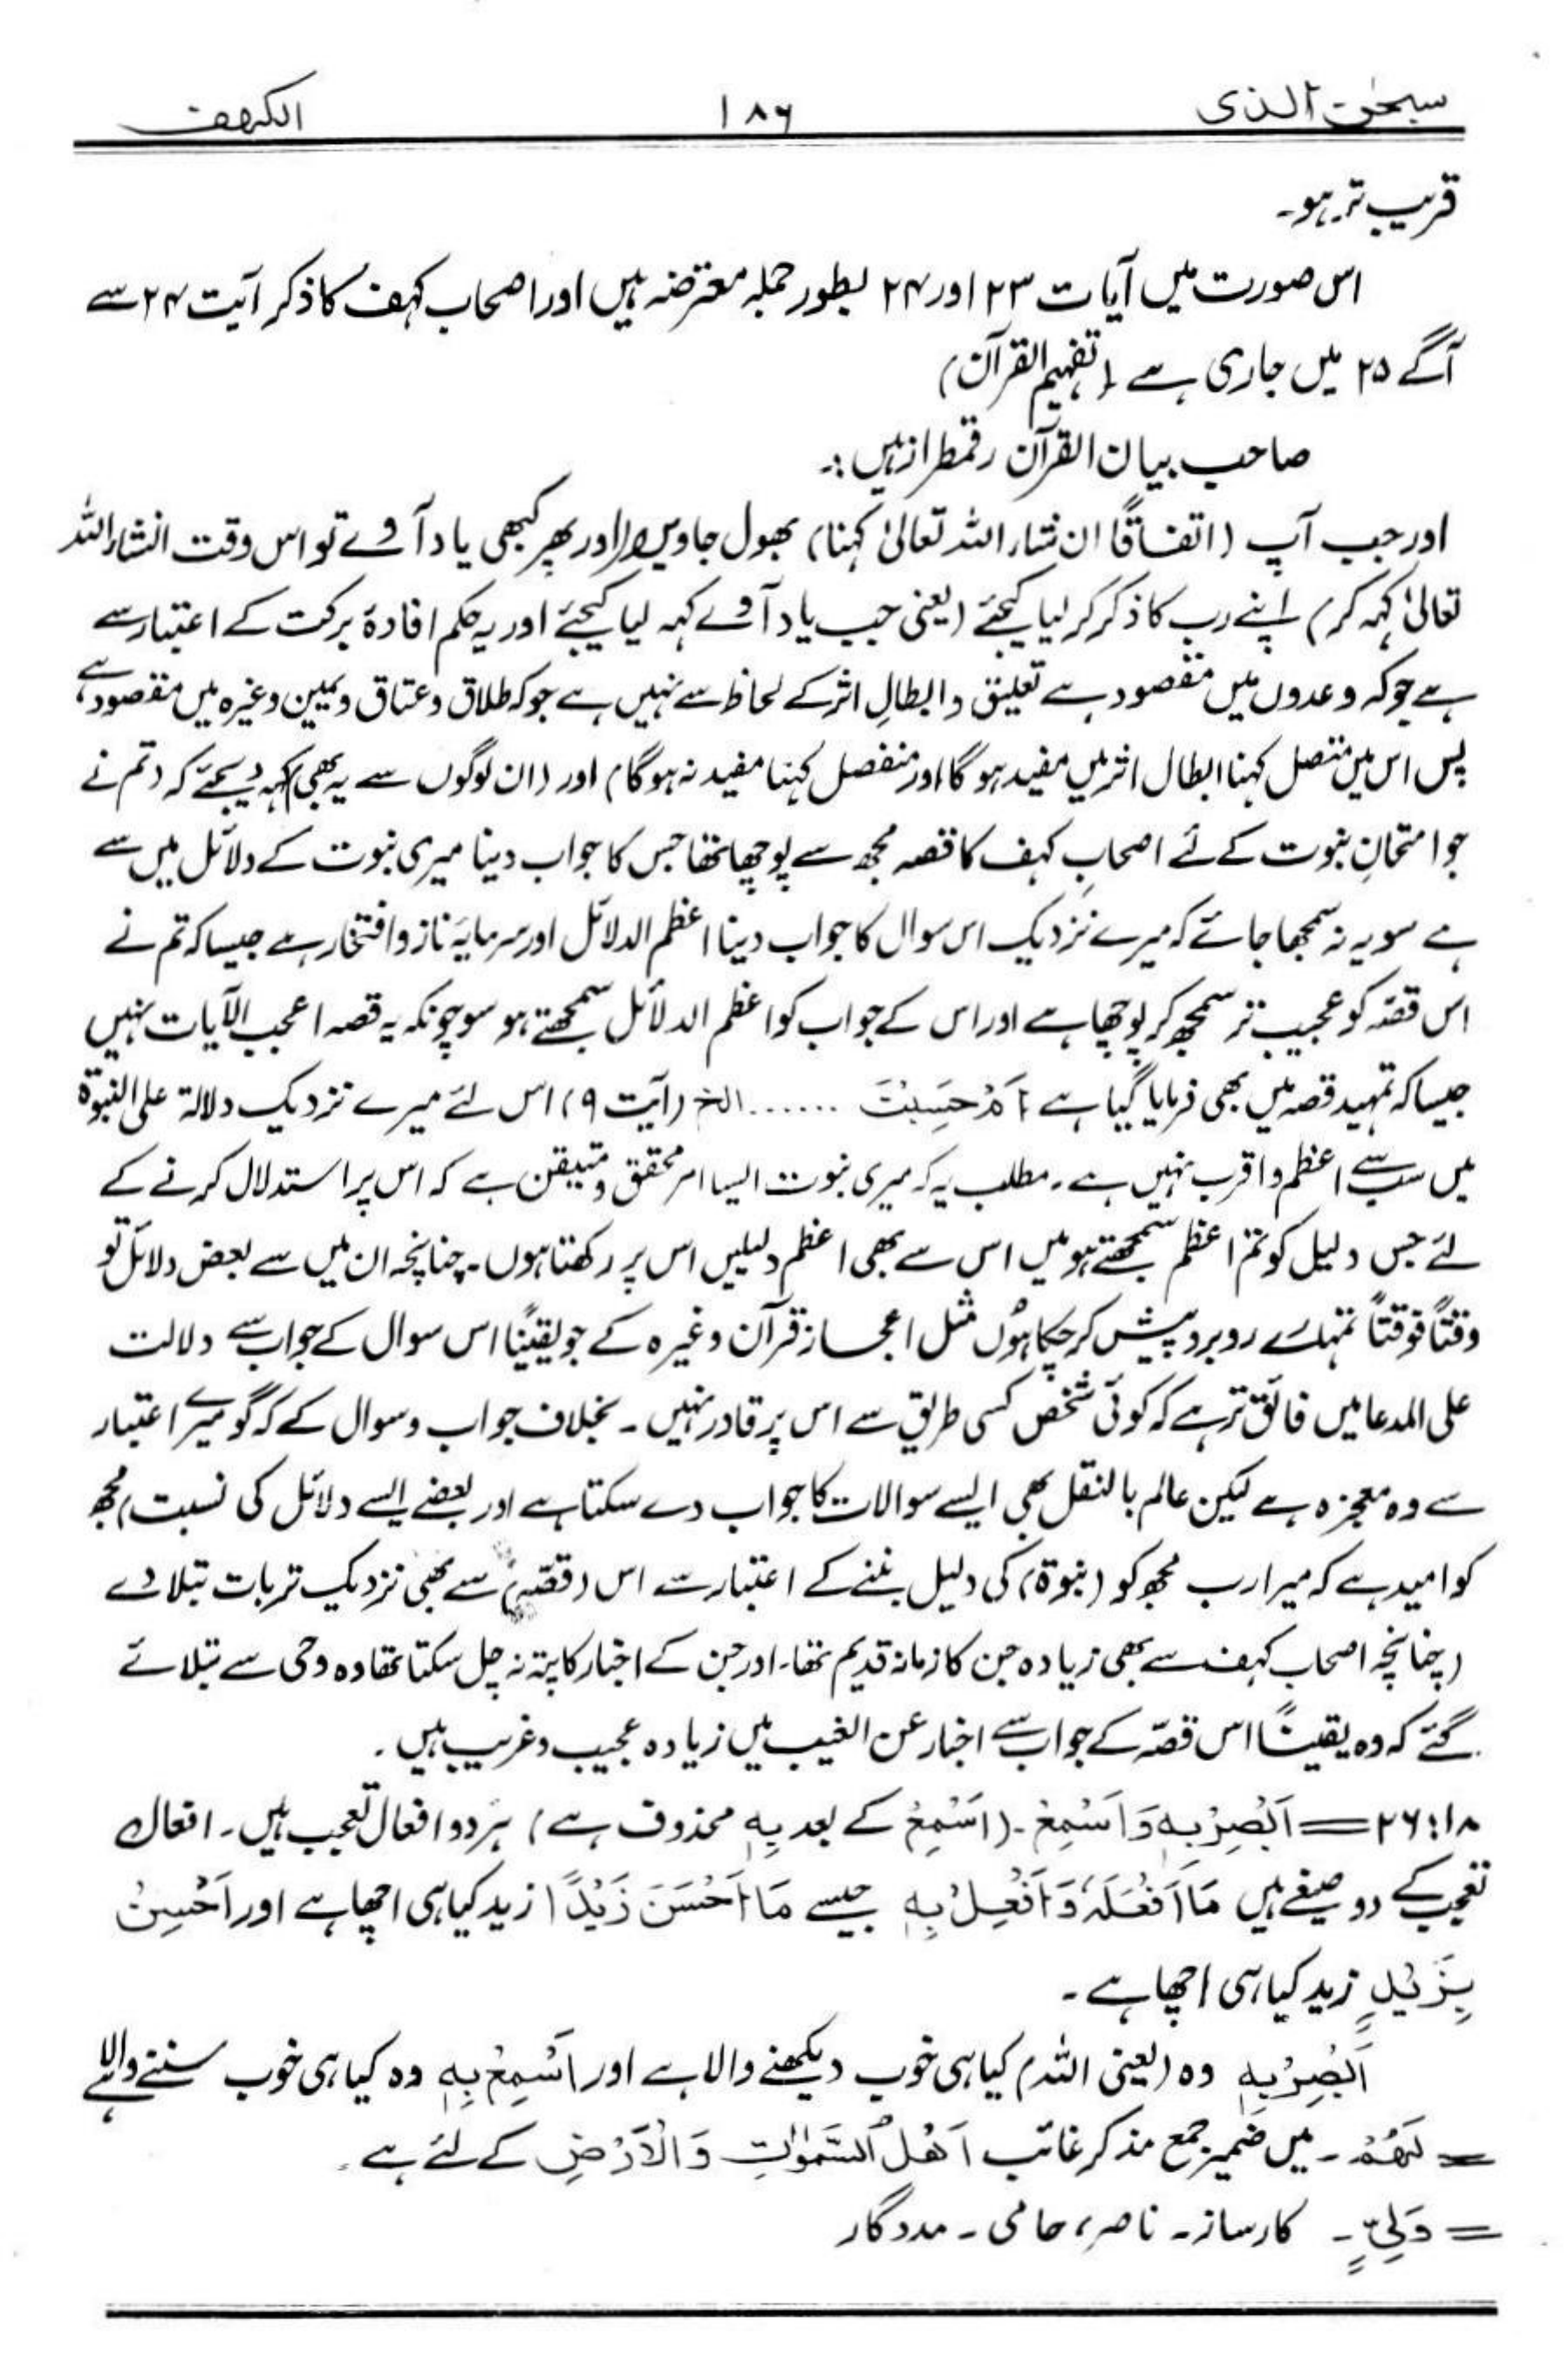 سبحٰن الذی ۱۸۶ الکہف
قریب تر ہو۔
اس صورت میں آیات ۲۳ اور ۲۴ بطور جملہ معترضہ ہیں اور اصحاب کہف کا ذکر آیت ۲۴ سے
آگے ۲۵ میں جاری ہے (تفہیم القرآن)
صاحب بیان القرآن رقمطراز ہیں :۔
اور جب آپ (اتفاقًا ان شاء اللہ تعالیٰ کہنا) بھول جاویں اور پھر کبھی یاد آوے تو اس وقت انشاء اللہ
تعالیٰ کہہ کر) اپنے رب کا ذکر کر لیا کیجئے (یعنی جب یاد آوے کہہ لیا کیجئے اور یہ حکم افادۂ برکت کے اعتبار سے
ہے جو کہ وعدوں میں مقصود ہے تعلیق و ابطالِ اثر کے لحاظ سے نہیں ہے جو کہ طلاق و عتاق و یمین وغیرہ میں مقصود ہے
پس اس میں متصل کہنا ابطال اثر میں مفید ہوگا اور منفصل کہنا مفید نہ ہوگا) اور (ان لوگوں سے یہ بھی) کہہ دیجئے کہ (تم نے
جو امتحانِ نبوت کے لئے اصحابِ کہف کا قصہ مجھ سے پوچھا تھا جس کا جواب دینا میری نبوت کے دلائل میں سے
ہے سو یہ نہ سمجھا جائے کہ میرے نزدیک اس سوال کا جواب دینا اعظم الدلائل اور سرمایۂ ناز و افتخار ہے جیسا کہ تم نے
اس قصّہ کو عجیب تر سمجھ کر پوچھا ہے اور اس کے جواب کو اعظم الدلائل سمجھتے ہو سو چونکہ یہ قصہ اعجب الآیات نہیں
جیسا کہ تمہید قصہ میں بھی فرمایا گیا ہے اَمْ حَسِبْتَ ...... الخ (آیت ۹) اس لئے میرے نزدیک دلالۃ علی النبوۃ
میں سب سے اعظم و اقرب نہیں ہے۔ مطلب یہ کہ میری نبوت ایسا امر محقق و متیقن ہے کہ اس پر استدلال کرنے کے
لئے جس دلیل کو تم اعظم سمجھتے ہو میں اس سے بھی اعظم دلیلیں اس پر رکھتا ہوں۔ چنانچہ ان میں سے بعض دلائل تو
وقتًا فوقتًا تمہارے روبرو پیش کر چکا ہوں مثل اعجاز قرآن وغیرہ کے جو یقینًا اس سوال کے جواب سے دلالت
علی المدعا میں فائق تر ہے کہ کوئی شخص کسی طریق سے اس پر قادر نہیں۔ بخلاف جواب و سوال کے کہ گو میرے اعتبار
سے وہ معجزہ ہے لیکن عالم بالنقل بھی ایسے سوالات کا جواب دے سکتا ہے اور بعضے ایسے دلائل کی نسبت) مجھ
کو امید ہے کہ میرا رب مجھ کو (نبوۃ) کی دلیل بننے کے اعتبار سے اس (قصّہ) سے بھی نزدیک تر بات بتلا دے
(چنانچہ اصحاب کہف سے بھی زیادہ جن کا زمانہ قدیم تھا۔ اور جن کے اخبار کا پتہ نہ چل سکتا تھا وہ وحی سے بتلائے
گئے کہ وہ یقینًا اس قصّہ کے جواب سے اخبار عن الغیب میں زیادہ عجیب و غریب ہیں۔
۱۸:۲۶ = اَبْصِرْ بِہٖ وَ اَسْمِعْ۔ (اَسْمِعْ کے بعد بِہٖ محذوف ہے) ہر دو افعال تعجب ہیں۔ افعال
تعجب کے دو صیغے ہیں مَا اَفْعَلَہٗ وَ اَفْعِلْ بِہٖ جیسے مَا اَحْسَنَ زَیْدًا زید کیا ہی اچھا ہے اور اَحْسِنْ
بِزَیْدٍ زید کیا ہی اچھا ہے۔
اَبْصِرْ بِہٖ وہ (یعنی اللہ) کیا ہی خوب دیکھنے والا ہے اور اَسْمِعْ بِہٖ وہ کیا ہی خوب سننے والا ہے
= لَہُمْ۔ میں ضمیر جمع مذکر غائب اَھْلُ السَّمٰوٰتِ وَ الْاَرْضِ کے لئے ہے۔
= وَلِیٍّ۔ کارساز۔ ناصر، حامی۔ مددگار